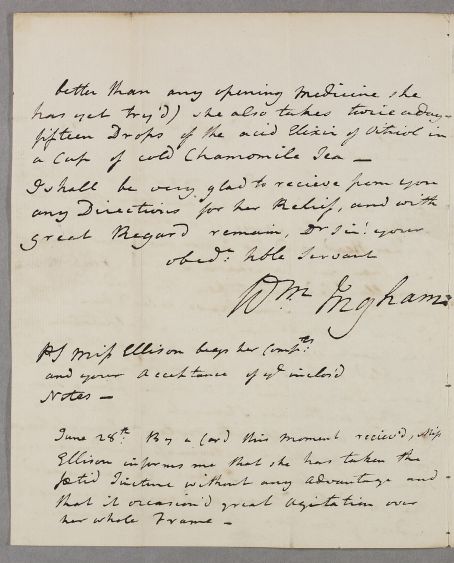 better than any opening medicine she
has yet try'd) she also takes twice a day
fifteen Drops of the acid Elixir of Vitriol in
a Cup of cold Chamomile Tea —
I shall be very glad to recieve from you
any Directions for her Relief, and with
great Regard remain, Dr Sir! your
obedt. hble Servant
Wm Ingham
PS Miss Ellison begs her Compts.
and your acceptance of ye inclos'd
Notes —
June 28th. By a Card this moment reciev'd, Miss
Ellison informs me that she has taken the
fœtid Tincture without any advantage and
that it occasion'd great agitation over
her whole Frame —